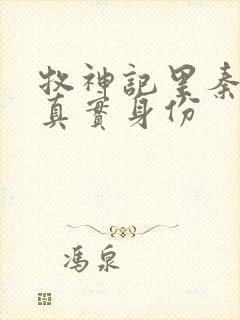 牧神記里秦
真實身份
馮泉